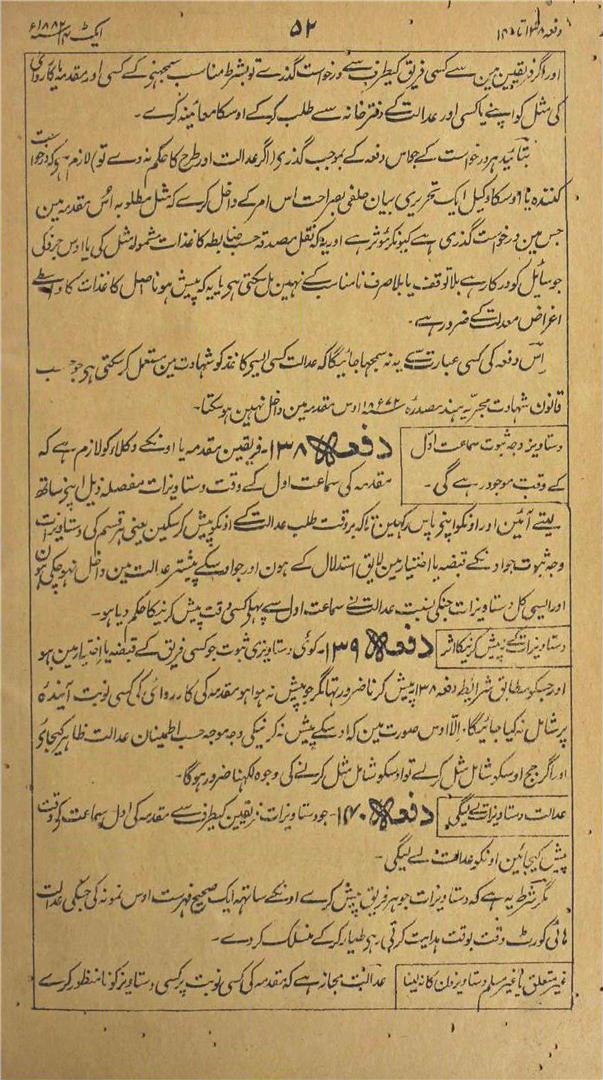 دفعہ ۱۳۸ تا ۱۴۰ ۵۲ ایکٹ ۱۴ سنہ ۱۸۸۲ء
اور اگر فریقین مین سے کسی فریق کیطرف سے درخواست گذرے تو بشرط مناسب سمجھنے کے کسی اور مقدمہ یا کارروائی
کی مثل کو اپنے یا کسی اور عدالت کے دفتر خانہ سے طلب کرکے اوسکا معائینہ کرے۔
بتائید ہر درخواست کے جو اس دفعہ کے بموجب گذری (اگر عدالت اور طرح کا حکم نہ دے تو) لازم ہے کہ درخواست
کنندہ یا اوسکا وکیل ایک تحریری بیان حلفی بصراحت اس امر کے داخل کرے کہ مثل مطلوبہ اوس مقدمہ مین
جس مین درخواست گذری ہے کیونکر مؤثر ہے اور یہ کہ نقل مصدقہ حسب ضابطہ کاغذات مشمولہ مثل کی یا اوس جزو کی
جو سائل کو درکار ہے بلا توقف یا بلا صرف نامناسب کے نہین مل سکتی ہے یا یہ کہ پیش ہونا اصل کاغذات کا واسطے
اغراض معدلت کے ضرور ہے۔
اس دفعہ کی کسی عبارت سے یہ نہ سمجھا جائیگا کہ عدالت کسی ایسے کاغذ کو شہادت مین مستعمل کرسکتی ہے جو حسب
قانون شہادت مجریہ ہند مصدرہ سنہ ۱۸۷۲ء اوس مقدمہ مین داخل نہین ہو سکتا۔
دستاویز وجہ ثبوت سماعت اول
کے وقت موجود رہے گی۔
دفعہ ۱۳۸۔ فریقین مقدمہ یا اونکے وکلاء کو لازم ہے کہ
مقدمہ کی سماعت اول کے وقت دستاویزات مفصلہ ذیل اپنے ساتھ
لیتے آئین اور اونکو اپنے پاس رکھین تاکہ بروقت طلب عدالت کے اونکو پیش کرسکین یعنی ہر قسم کی دستاویزات
وجہ ثبوت جو اونکے قبضہ یا اختیار مین لایق استدلال کے ہون اور جو اوسکے پیشتر عدالت مین داخل نہو چکی ہون
اور ایسی کل دستاویزات جنکی نسبت عدالت نے سماعت اول سے پہلے کسی وقت پیش کرنیکا حکم دیا ہو۔
دستاویزات کے نہ پیش کرنیکا اثر دفعہ ۱۳۹۔ کوئی دستاویزی ثبوت جو کسی فریق کے قبضہ یا اختیار مین ہو
اور جسکو مطابق شرایط دفعہ ۱۳۸ پیش کرنا ضرور تھا مگر جو پیش نہ ہوا ہو مقدمہ کی کارروائی کی کسی نوبت آیندہ
پر شامل نہ کیا جائیگا۔ الّا اوس صورت مین کہ اوسکے پیش نہ کرنیکی وجہ موجہ حسب اطمینان عدالت ظاہر کیجائے
اور اگر جج اوسکو شامل مثل کرلے تو اوسکو شامل مثل کرنے کی وجوہ لکھنا ضرور ہوگا۔
عدالت دستاویزات لے لیگی دفعہ ۱۴۰۔ جو دستاویزات فریقین کیطرف سے مقدمہ کی اول سماعت کے وقت
پیش کیجائین اونکو عدالت لے لیگی۔
مگر شرط یہ ہے کہ دستاویزات جو ہر فریق پیش کرے اونکے ساتھ ایک صحیح فہرست اوس نمونہ کی جسکی عدالت
ہائی کورٹ وقت بوقت ہدایت کرتی رہے طیار کرکے منسلک کردے۔
غیر متعلق یا غیر مسلم دستاویزون کا نہ لینا عدالت مجاز ہے کہ مقدمہ کی کسی نوبت پر کسی دستاویز کو نامنظور کرے